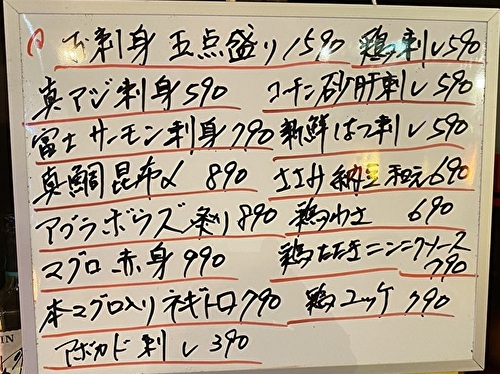 お刺身 五点盛り 1590
真アジ刺身 590
富士サーモン刺身 790
真鯛昆布〆 890
アブラボウズ炙り 890
マグロ赤身 990
本マグロ入りネギトロ 790
アボカド刺し 390
鶏刺し 590
コーチン砂肝刺し 590
新鮮はつ刺し 590
ささみ納豆和え 690
鶏わさ 690
鶏たたきニンニクソース
790
鶏ユッケ 790